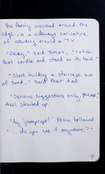 The family crowded around the
edge in a sideways caricature
of crowding around a TV.
"Okay," said Simon, "take
that candle and stand on its head."
"Start building a staircase out
of sand," said their dad.
"Serious suggestions only, please,"
Axel shouted up.
"My jumprope!" Petra hollered
do you see it anywhere?"